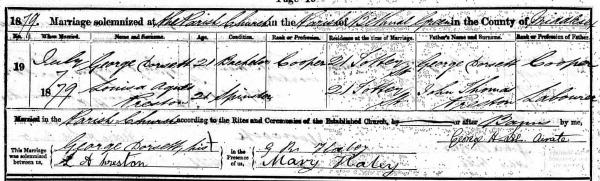 1879. Marriage solemnized at the Parish Church in the Parish of Bethnal Green in the County of Middlesex
No. When Married. Name and Surname. Age. Condition. Rank or Profession. Residence at the time of Marriage. Father's Name and Surname. Rank or Profession of Father.
19 July 7 1879 George Dorsett 21 Bachelor Cooper 21 George Dorsett Cooper
Louisa Agnes Preston 21 Spinster 21 John Thomas Preston Labourer
Married in the Parish Church according to the Rites and Ceremonies of the Established Church, by or after Banns by me,
George Curate
This Marriage was solemnized between us,
George Dorsett
L A Preston
In the Presence of us,
Mary Haley